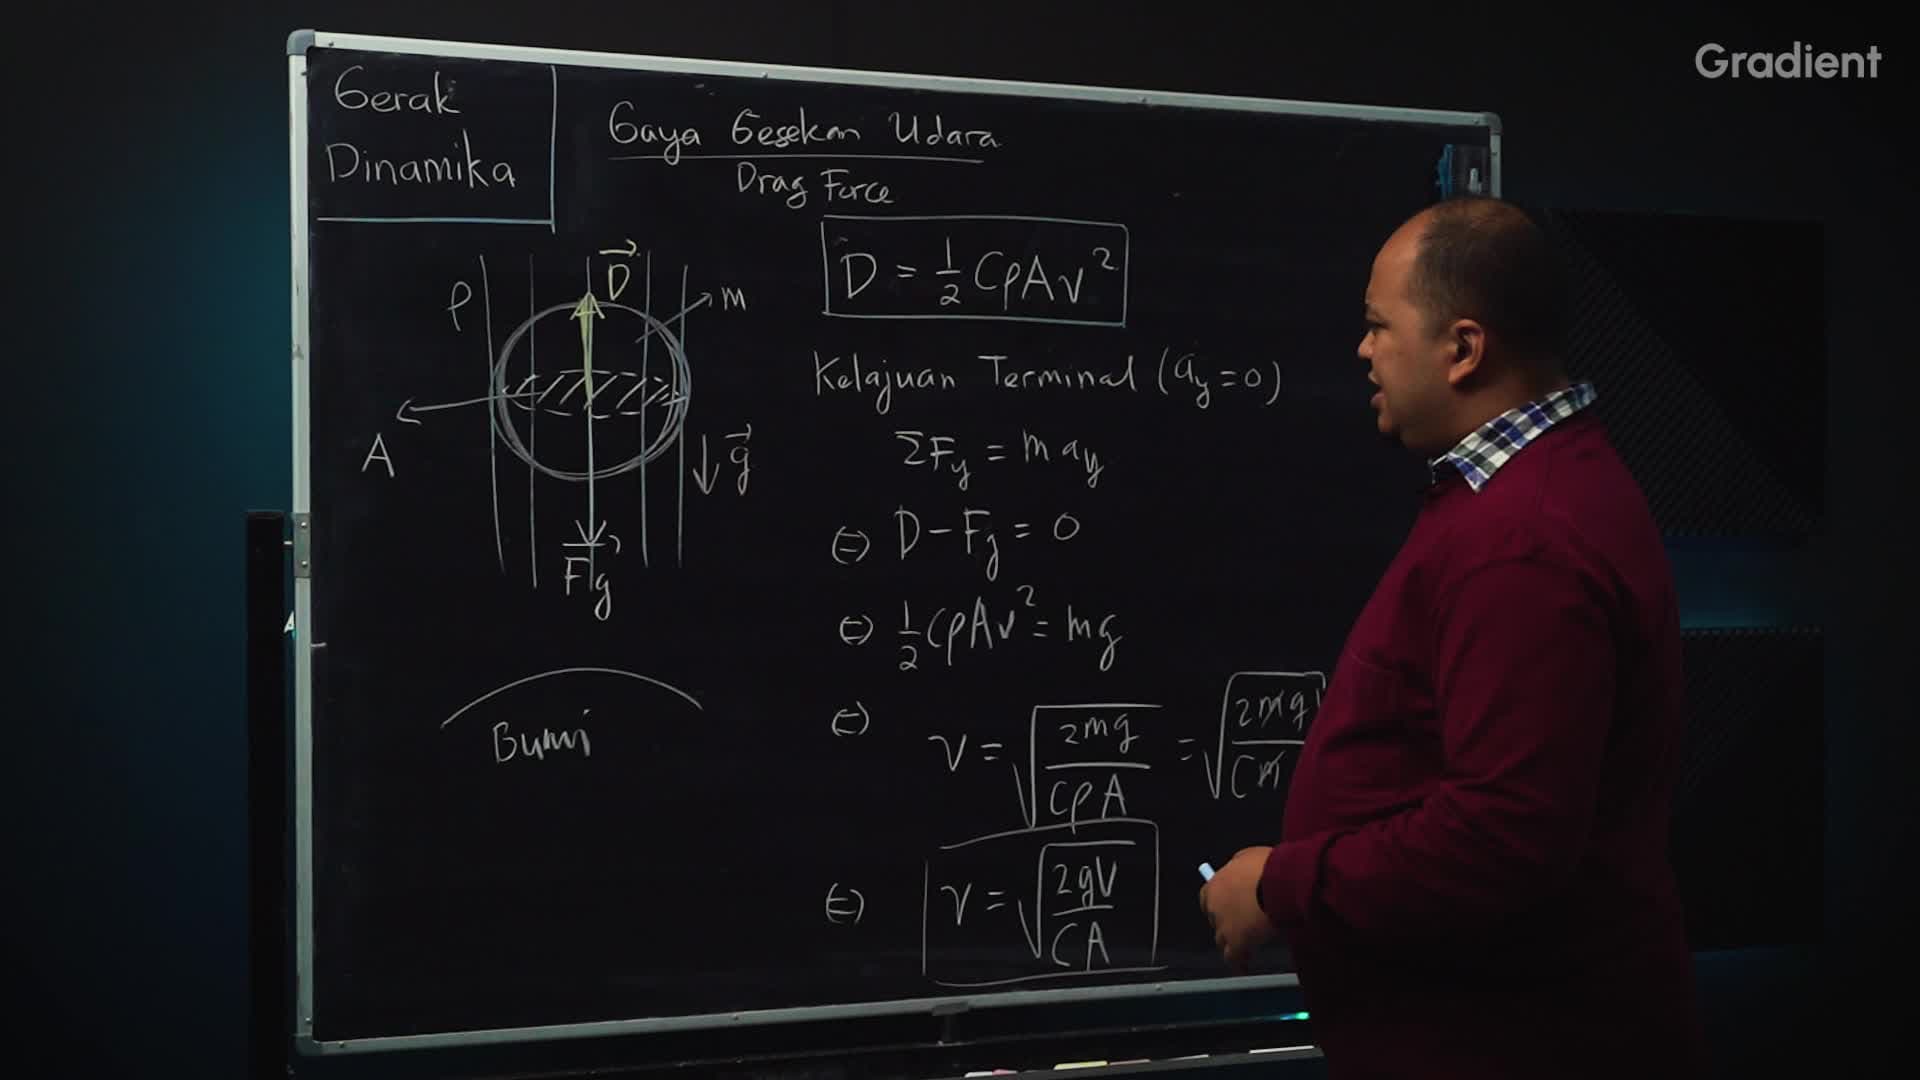 Gradient
Gerak
Dinamika
Gaya Gesekan Udara
Drag Force
D = ½ CρAv²
ρ
D⃗
m
A
g⃗
F⃗g
Bumi
Kelajuan Terminal (ay = 0)
ΣFy = m ay
⇔ D − Fg = 0
⇔ ½ CρAv² = mg
⇔ v = √(2mg / CρA) = √(2mg / Cm
⇔ v = √(2gV / CA)